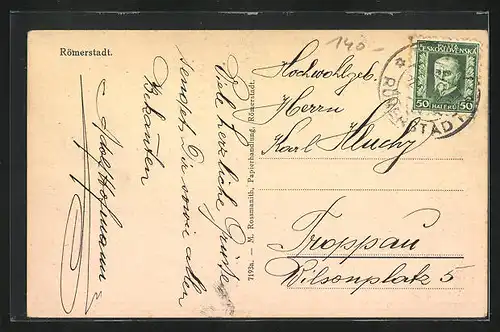 Römerstadt.
140-
ČESKOSLOVENSKÁ
50 HALÉŘŮ 50
Hochwohlgeb.
Herrn
Karl Hluchy
Troppau
Wilsonplatz 5
7192a. — M. Rossmanith, Papierhandlung, Römerstadt.
Viele herzliche Grüsse
sendet Dir sowie allen
Bekannten
Adolf Hofmann